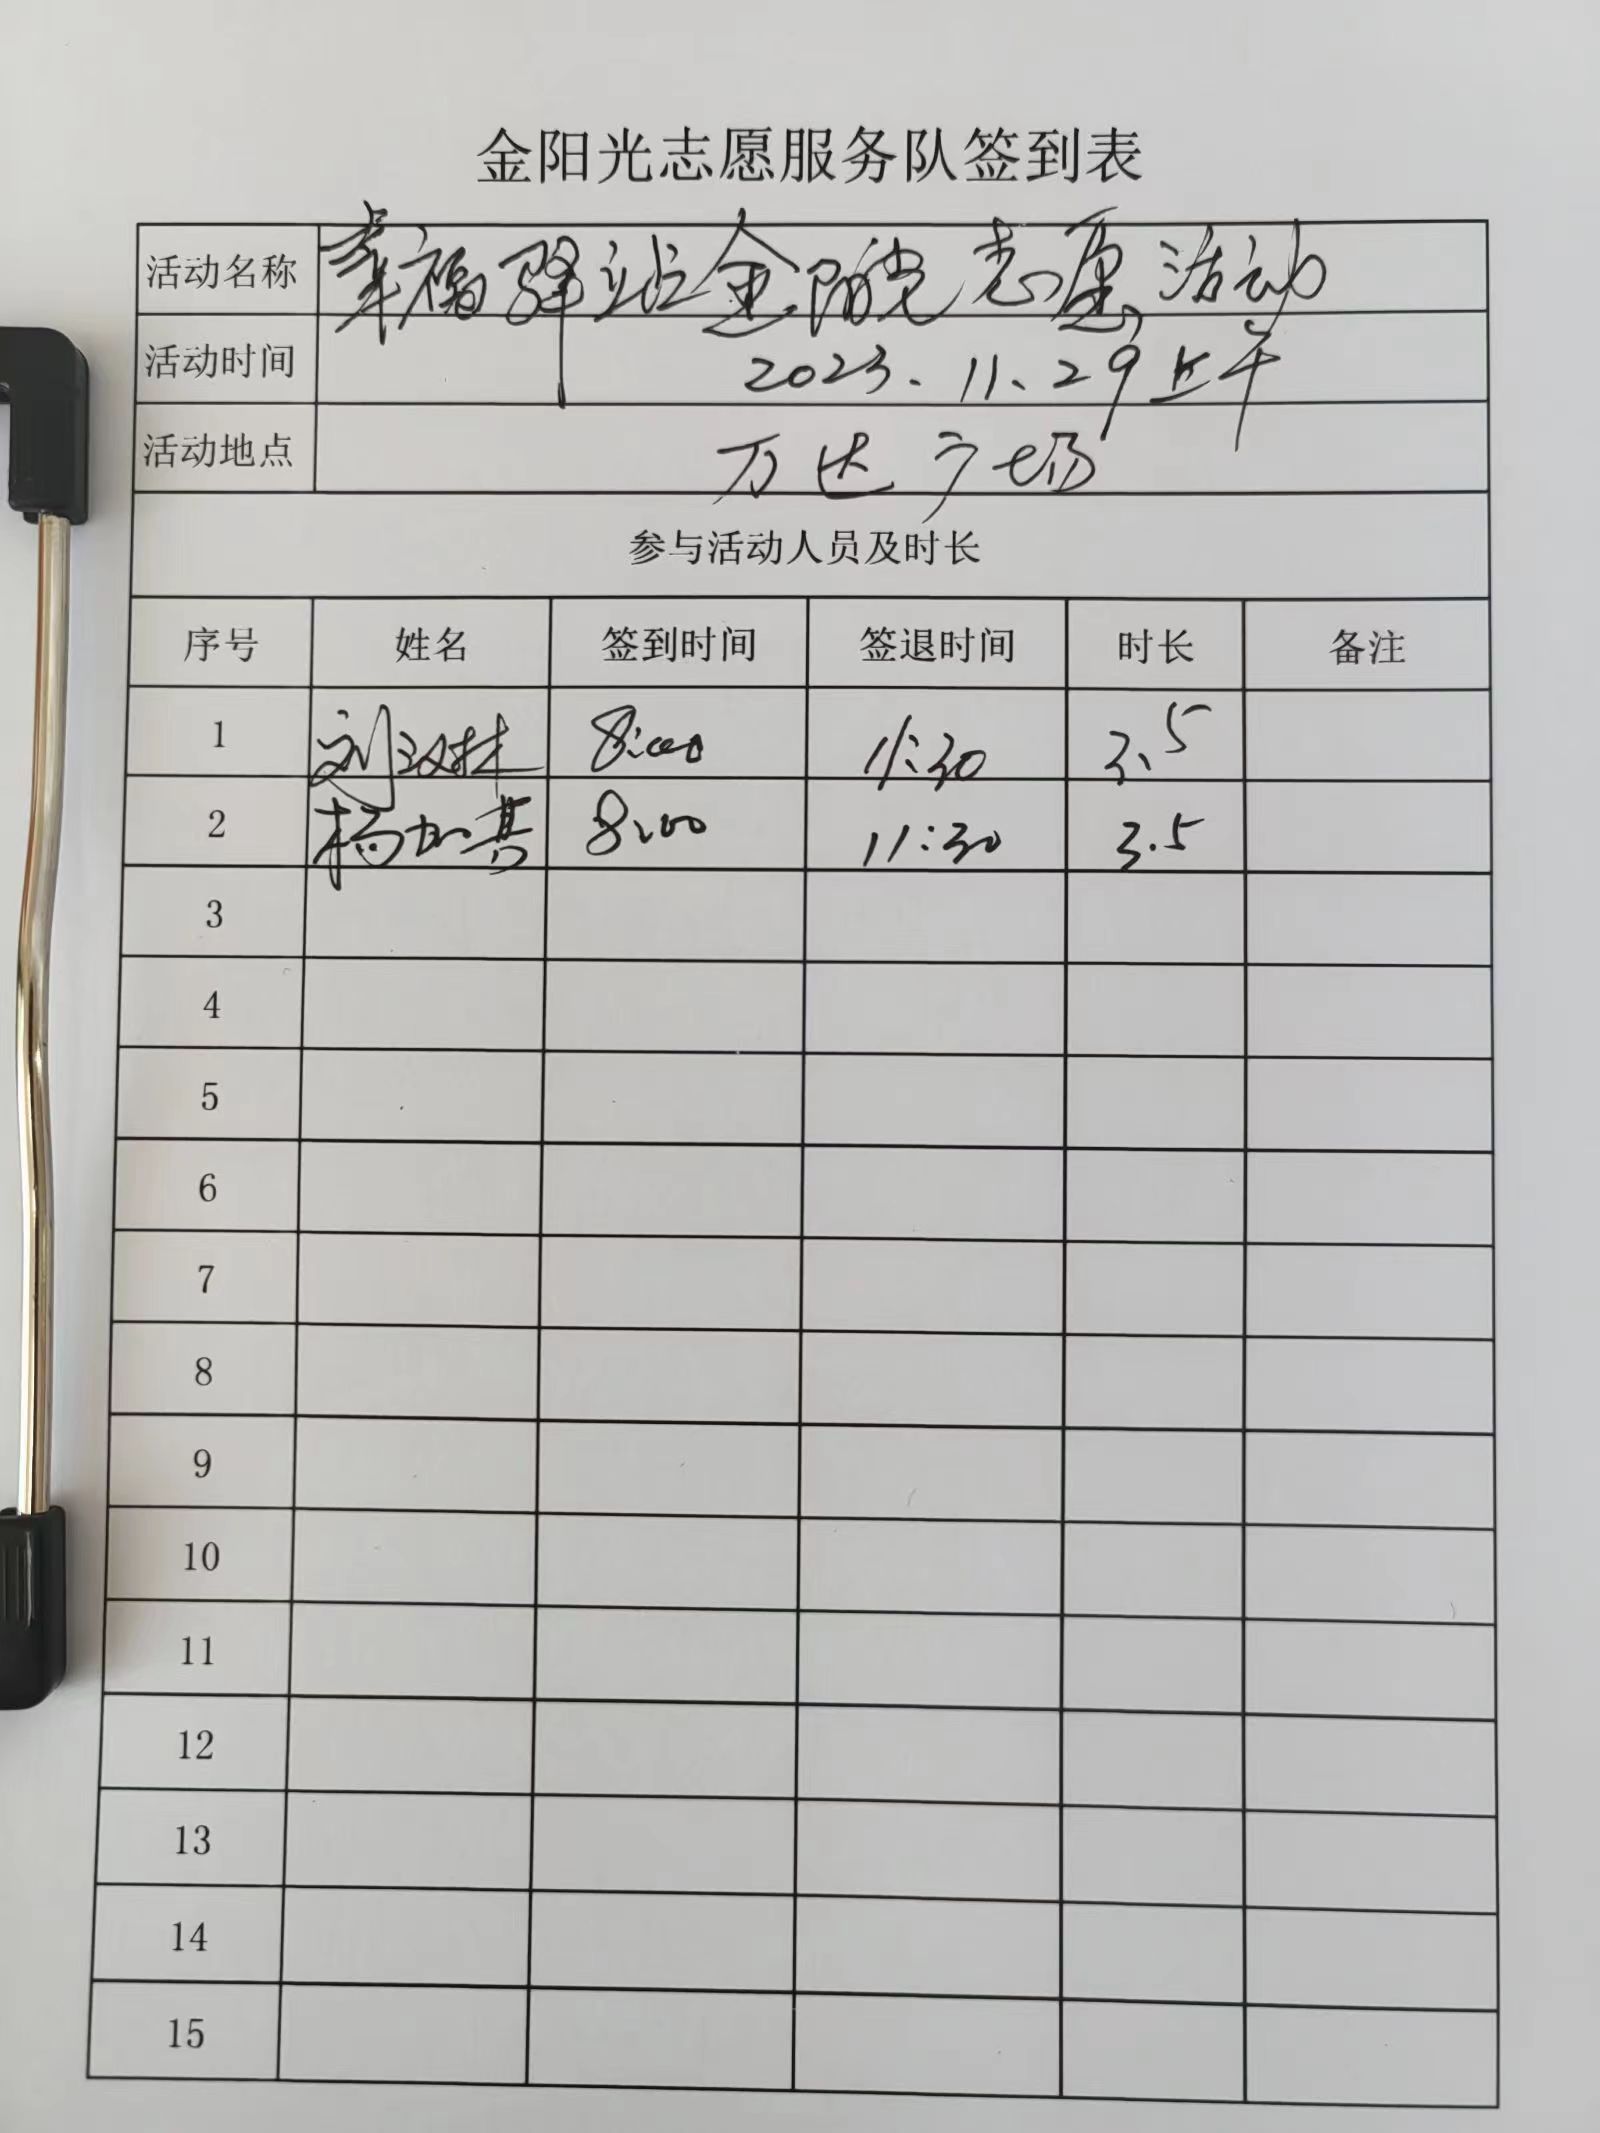 金阳光志愿服务队签到表
活动名称 幸福驿站金阳光志愿活动
活动时间 2023.11.29上午
活动地点 万达广场
参与活动人员及时长
序号 姓名 签到时间 签退时间 时长 备注
1 刘汉林 8:00 11:30 3.5
2 杨加其 8:00 11:30 3.5
3
4
5
6
7
8
9
10
11
12
13
14
15